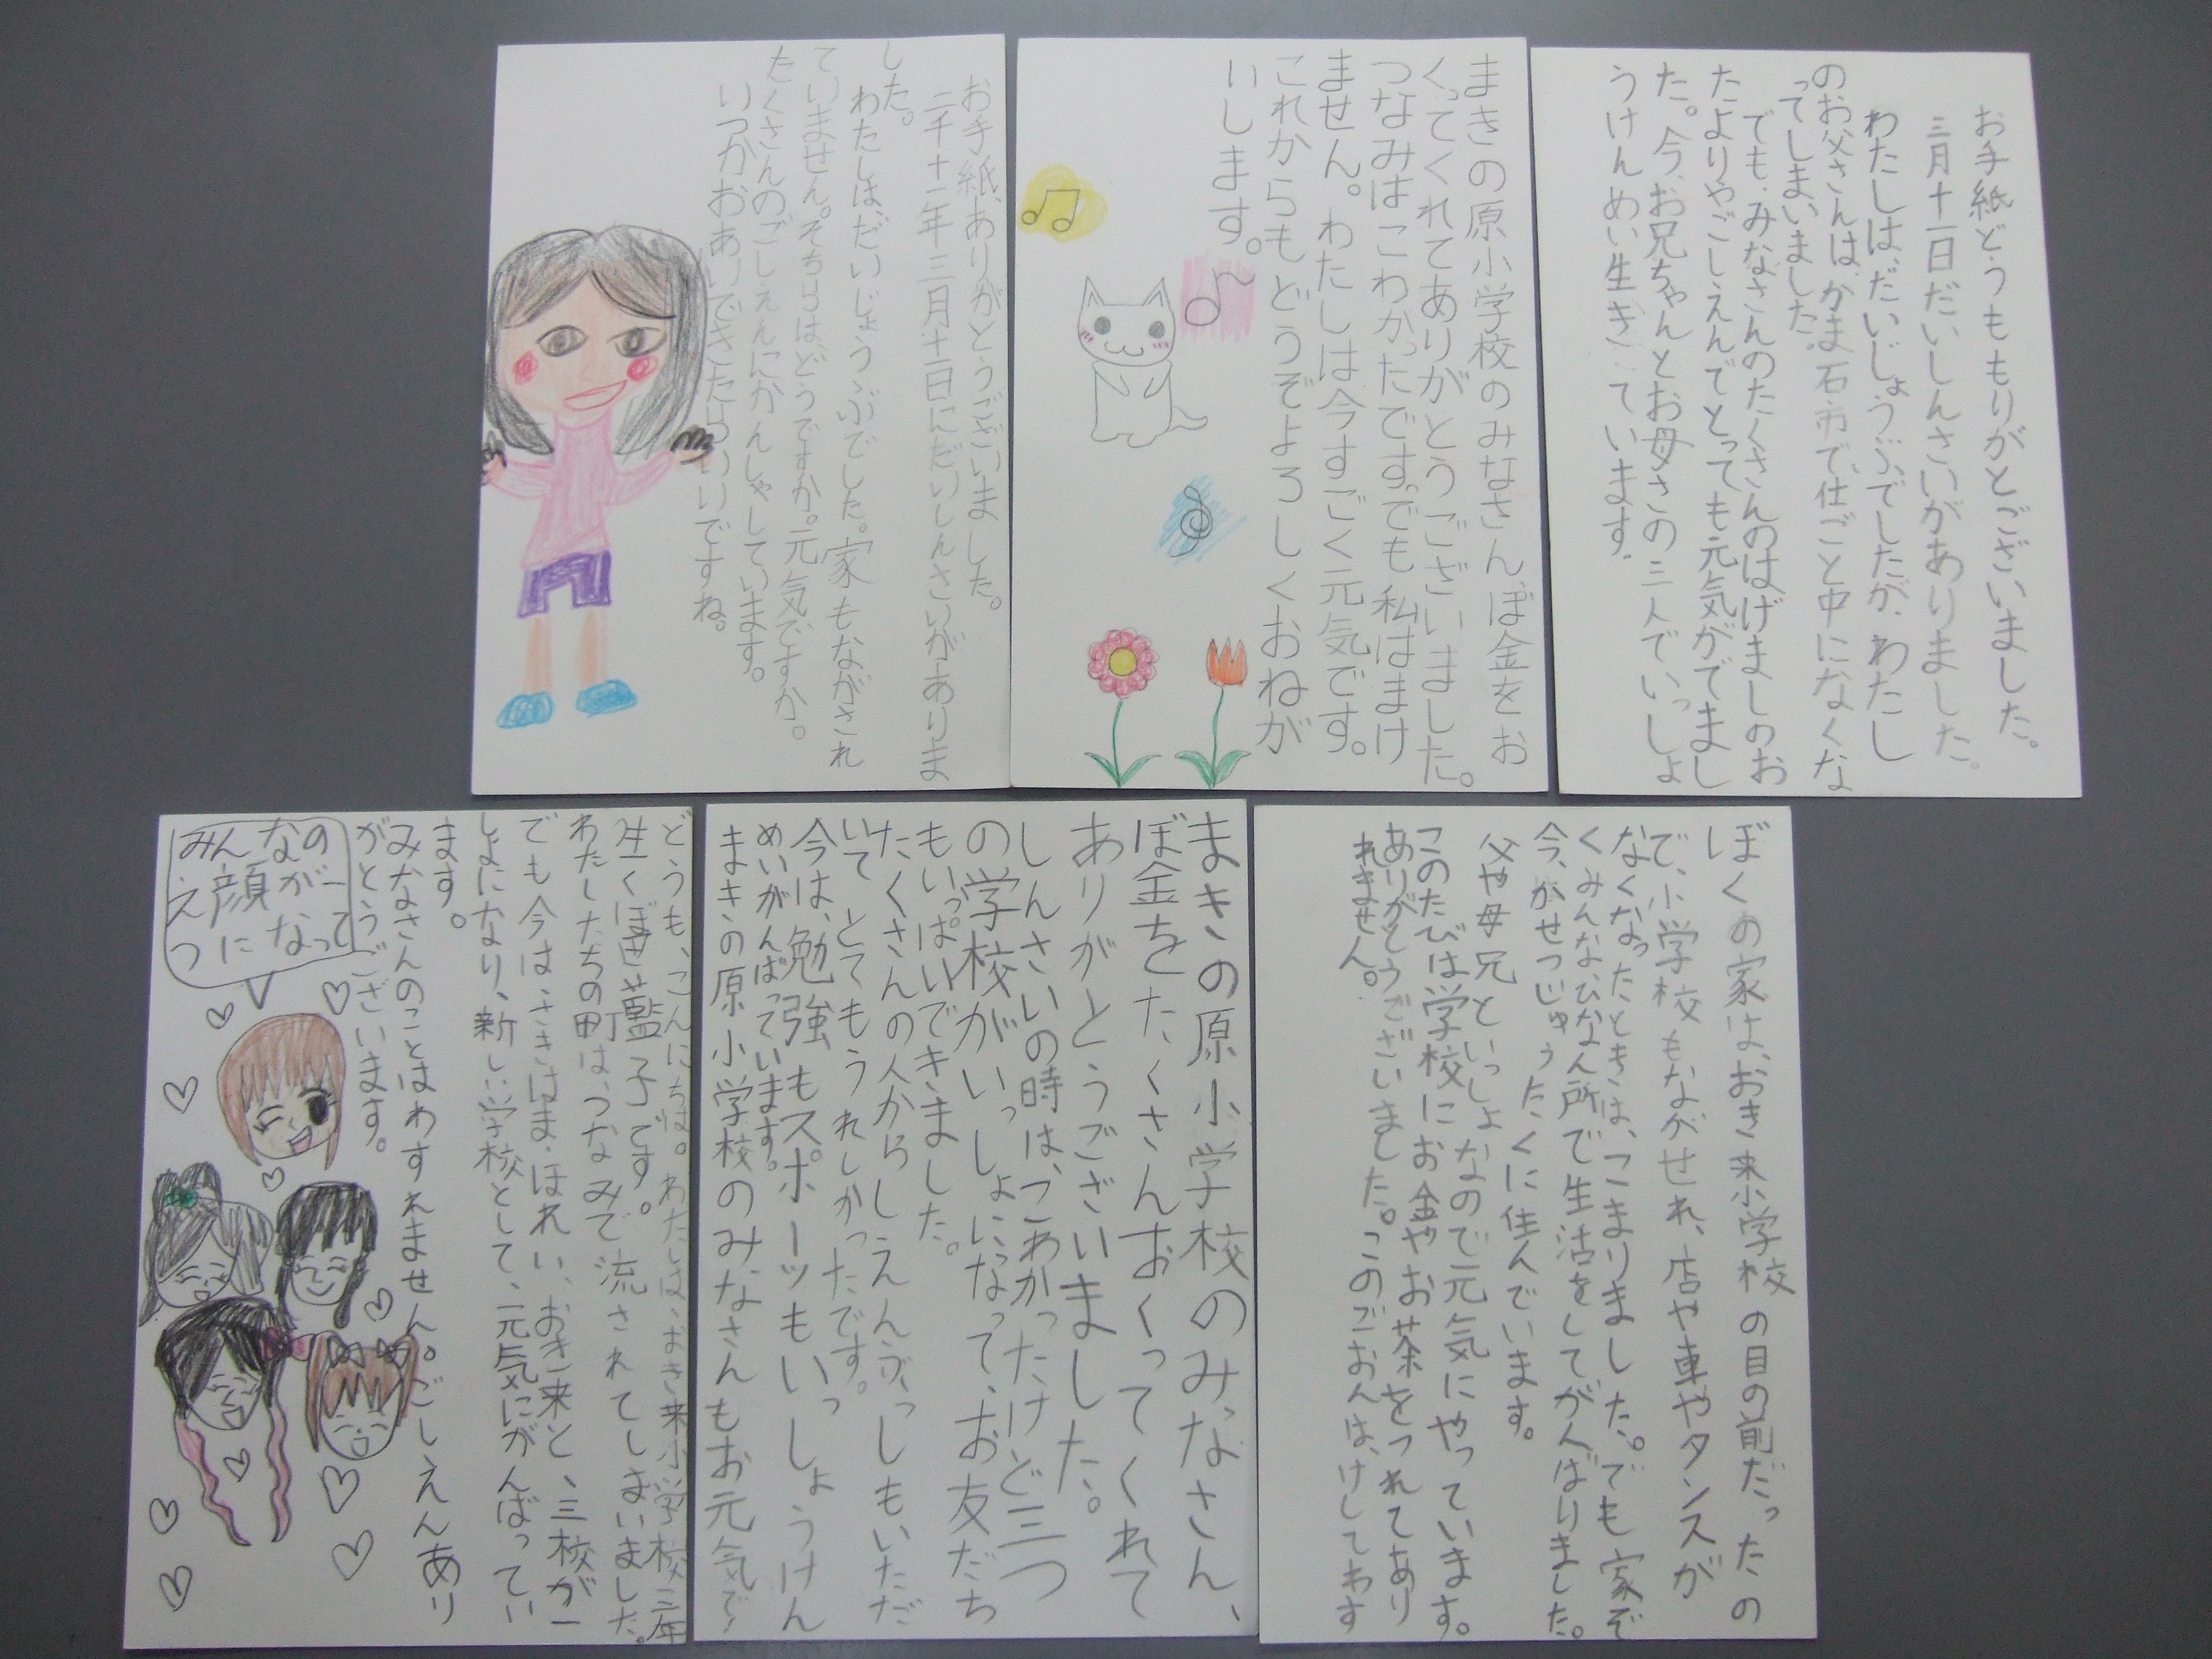 お手紙どうももりがとございました。
三月十一日だいしんさいがありました。
わたしは、だいじょうぶでしたが、わたし
のお父さんは、かま石市で、仕ごと中になくな
ってしまいました。
でも、みなさんのたくさんのはげましのお
たよりやごしえんでとっても元気がでまし
た。今、お兄ちゃんとお母さの三人でいっしょ
うけんめい生きています。
まきの原小学校のみなさん、ぼ金をお
くってくれてありがとうございました。
つなみはこわかったです。でも私はまけ
ません。わたしは今すごく元気です。
これからもどうぞよろしくおねが
いします。
お手紙、ありがとうございました。
二千十一年三月十一日にだいしんさいがありま
した。
わたしはだいじょうぶでした。家もながされ
ていません。そちらはどうですか。元気ですか。
たくさんのごしえんにかんしゃしています。
いつかおあいできたらいいですね。
ぼくの家は、おき来小学校の目の前だったの
で、小学校もながせれ、店や車やタンスが
なくなったときは、こまりました。でも家ぞ
くみんな、ひなん所で生活をしてがんばりました。
今、かせつじゅうたくに住んでいます。
父や母兄といっしょなので元気にやっています。
このたびは学校にお金やお茶をつれてあり
ありがとうございました。このごおんは、けしてわす
れません。
まきの原小学校のみなさん、
ぼ金をたくさんおくってくれて
ありがとうございました。
しんさいの時は、こわかったけど三つ
の学校がいっしょになって、お友だち
もいっぱいできました。
たくさんの人からしえんぶっしもいただ
いてとてもうれしかったです。
今は、勉強もスポーツもいっしょうけん
めいがんばっています。
まきの原小学校のみなさんもお元気で
どうも、こんにちは。わたしは、おき来小学校三年
生くぼ藍子です。
わたしたちの町は、つなみで流されてしまいました。
でも今は、さきはま・ほれい、おき来と、三校が一
しょになり、新しい学校として、元気にがんばってい
ます。
みなさんのことはわすれません。ごしえんあり
がとうございます。
みんなの
え顔が一
つになって